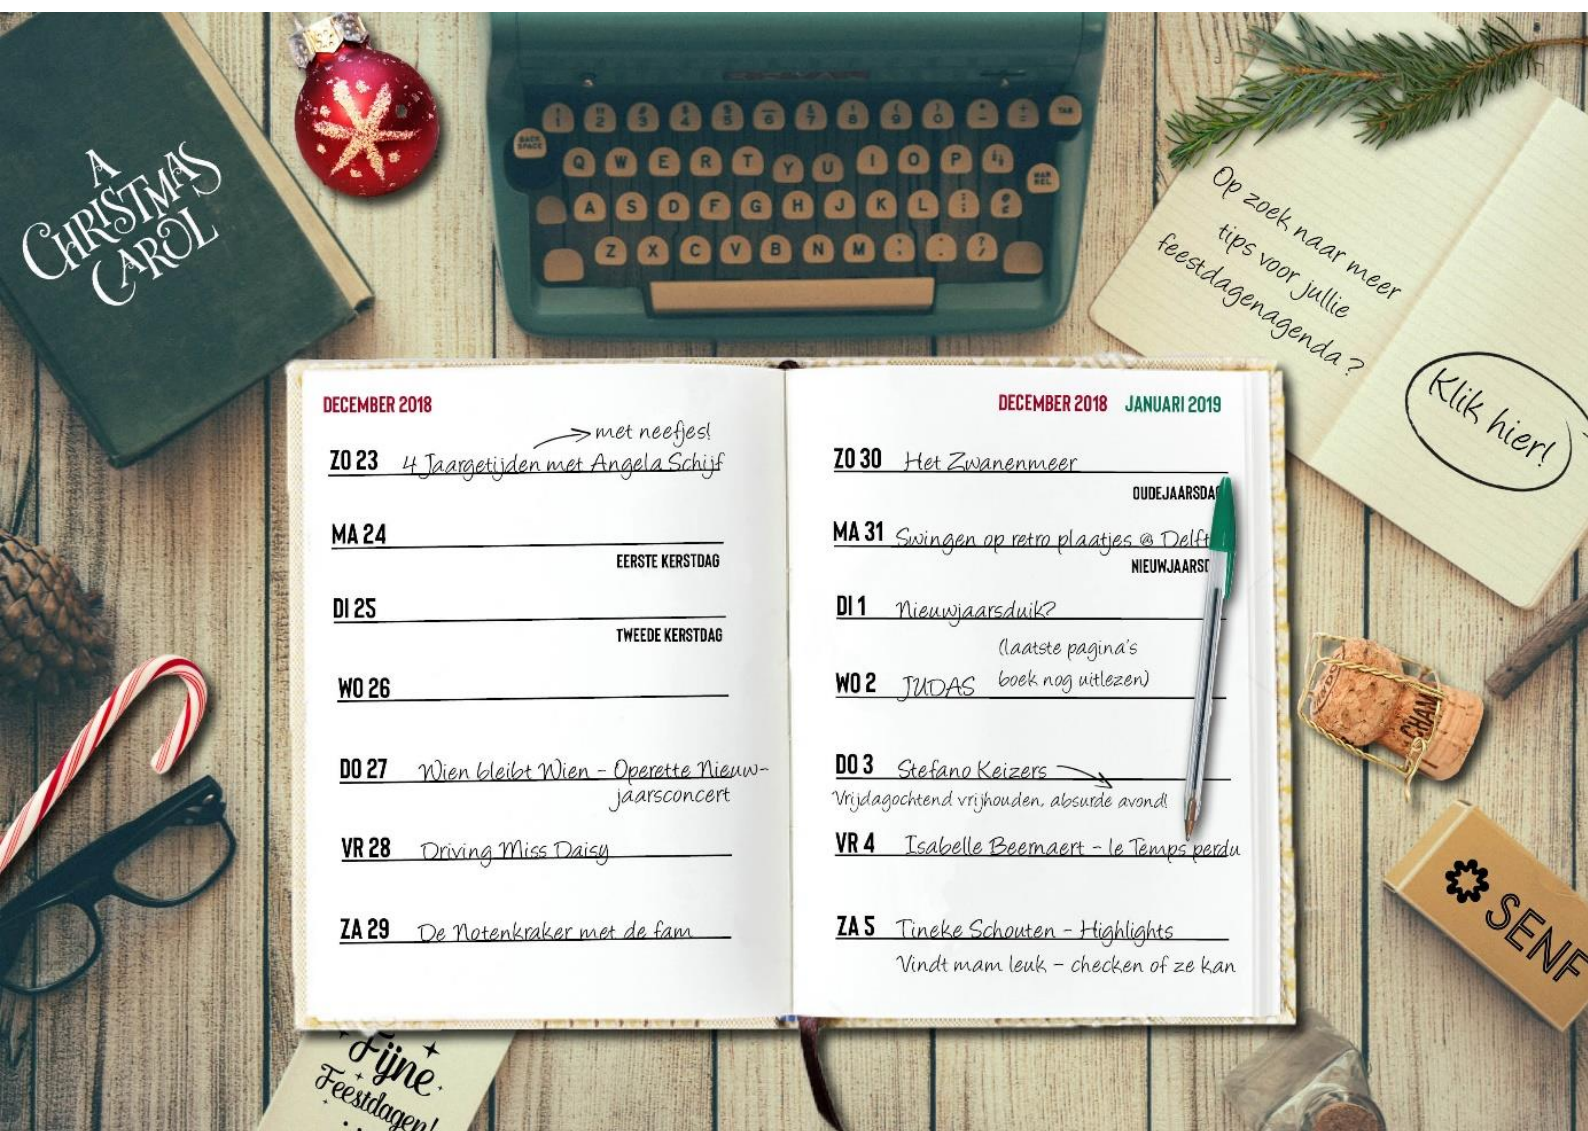 A
CHRISTMAS
CAROL
BACK
SPACE
TAB
Q W E R T Y U I O P
MAR
REL
A S D F G H J K L
Z X C V B N M
Op zoek naar meer
tips voor jullie
feestdagenagenda?
Klik hier!
DECEMBER 2018
met neefjes!
ZO 23 4 Jaargetijden met Angela Schijf
MA 24
EERSTE KERSTDAG
DI 25
TWEEDE KERSTDAG
WO 26
DO 27 Wien bleibt Wien - Operette Nieuw-
jaarsconcert
VR 28 Driving Miss Daisy
ZA 29 De Notenkraker met de fam
DECEMBER 2018 JANUARI 2019
ZO 30 Het Zwanenmeer
OUDEJAARSDA
MA 31 Swingen op retro plaatjes @ Delft
NIEUWJAARSD
DI 1 Nieuwjaarsduik?
(laatste pagina's
WO 2 JUDAS boek nog uitlezen)
DO 3 Stefano Keizers
Vrijdagochtend vrijhouden, absurde avond!
VR 4 Isabelle Beernaert - le Temps perdu
ZA 5 Tineke Schouten - Highlights
Vindt mam leuk - checken of ze kan
CHAM
SENF
Fijne
Feestdagen!